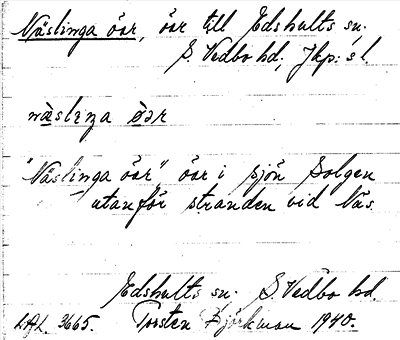 Näslinga öar, öar till Edshults sn.
S. Vedbo hd, Jkp:s l.
näslinga öar
"Näslinga öar" öar i sjön Solgen
utanför stranden vid Näs.
Edshults sn. S. Vedbo hd.
3665. Torsten Björkman 1940.